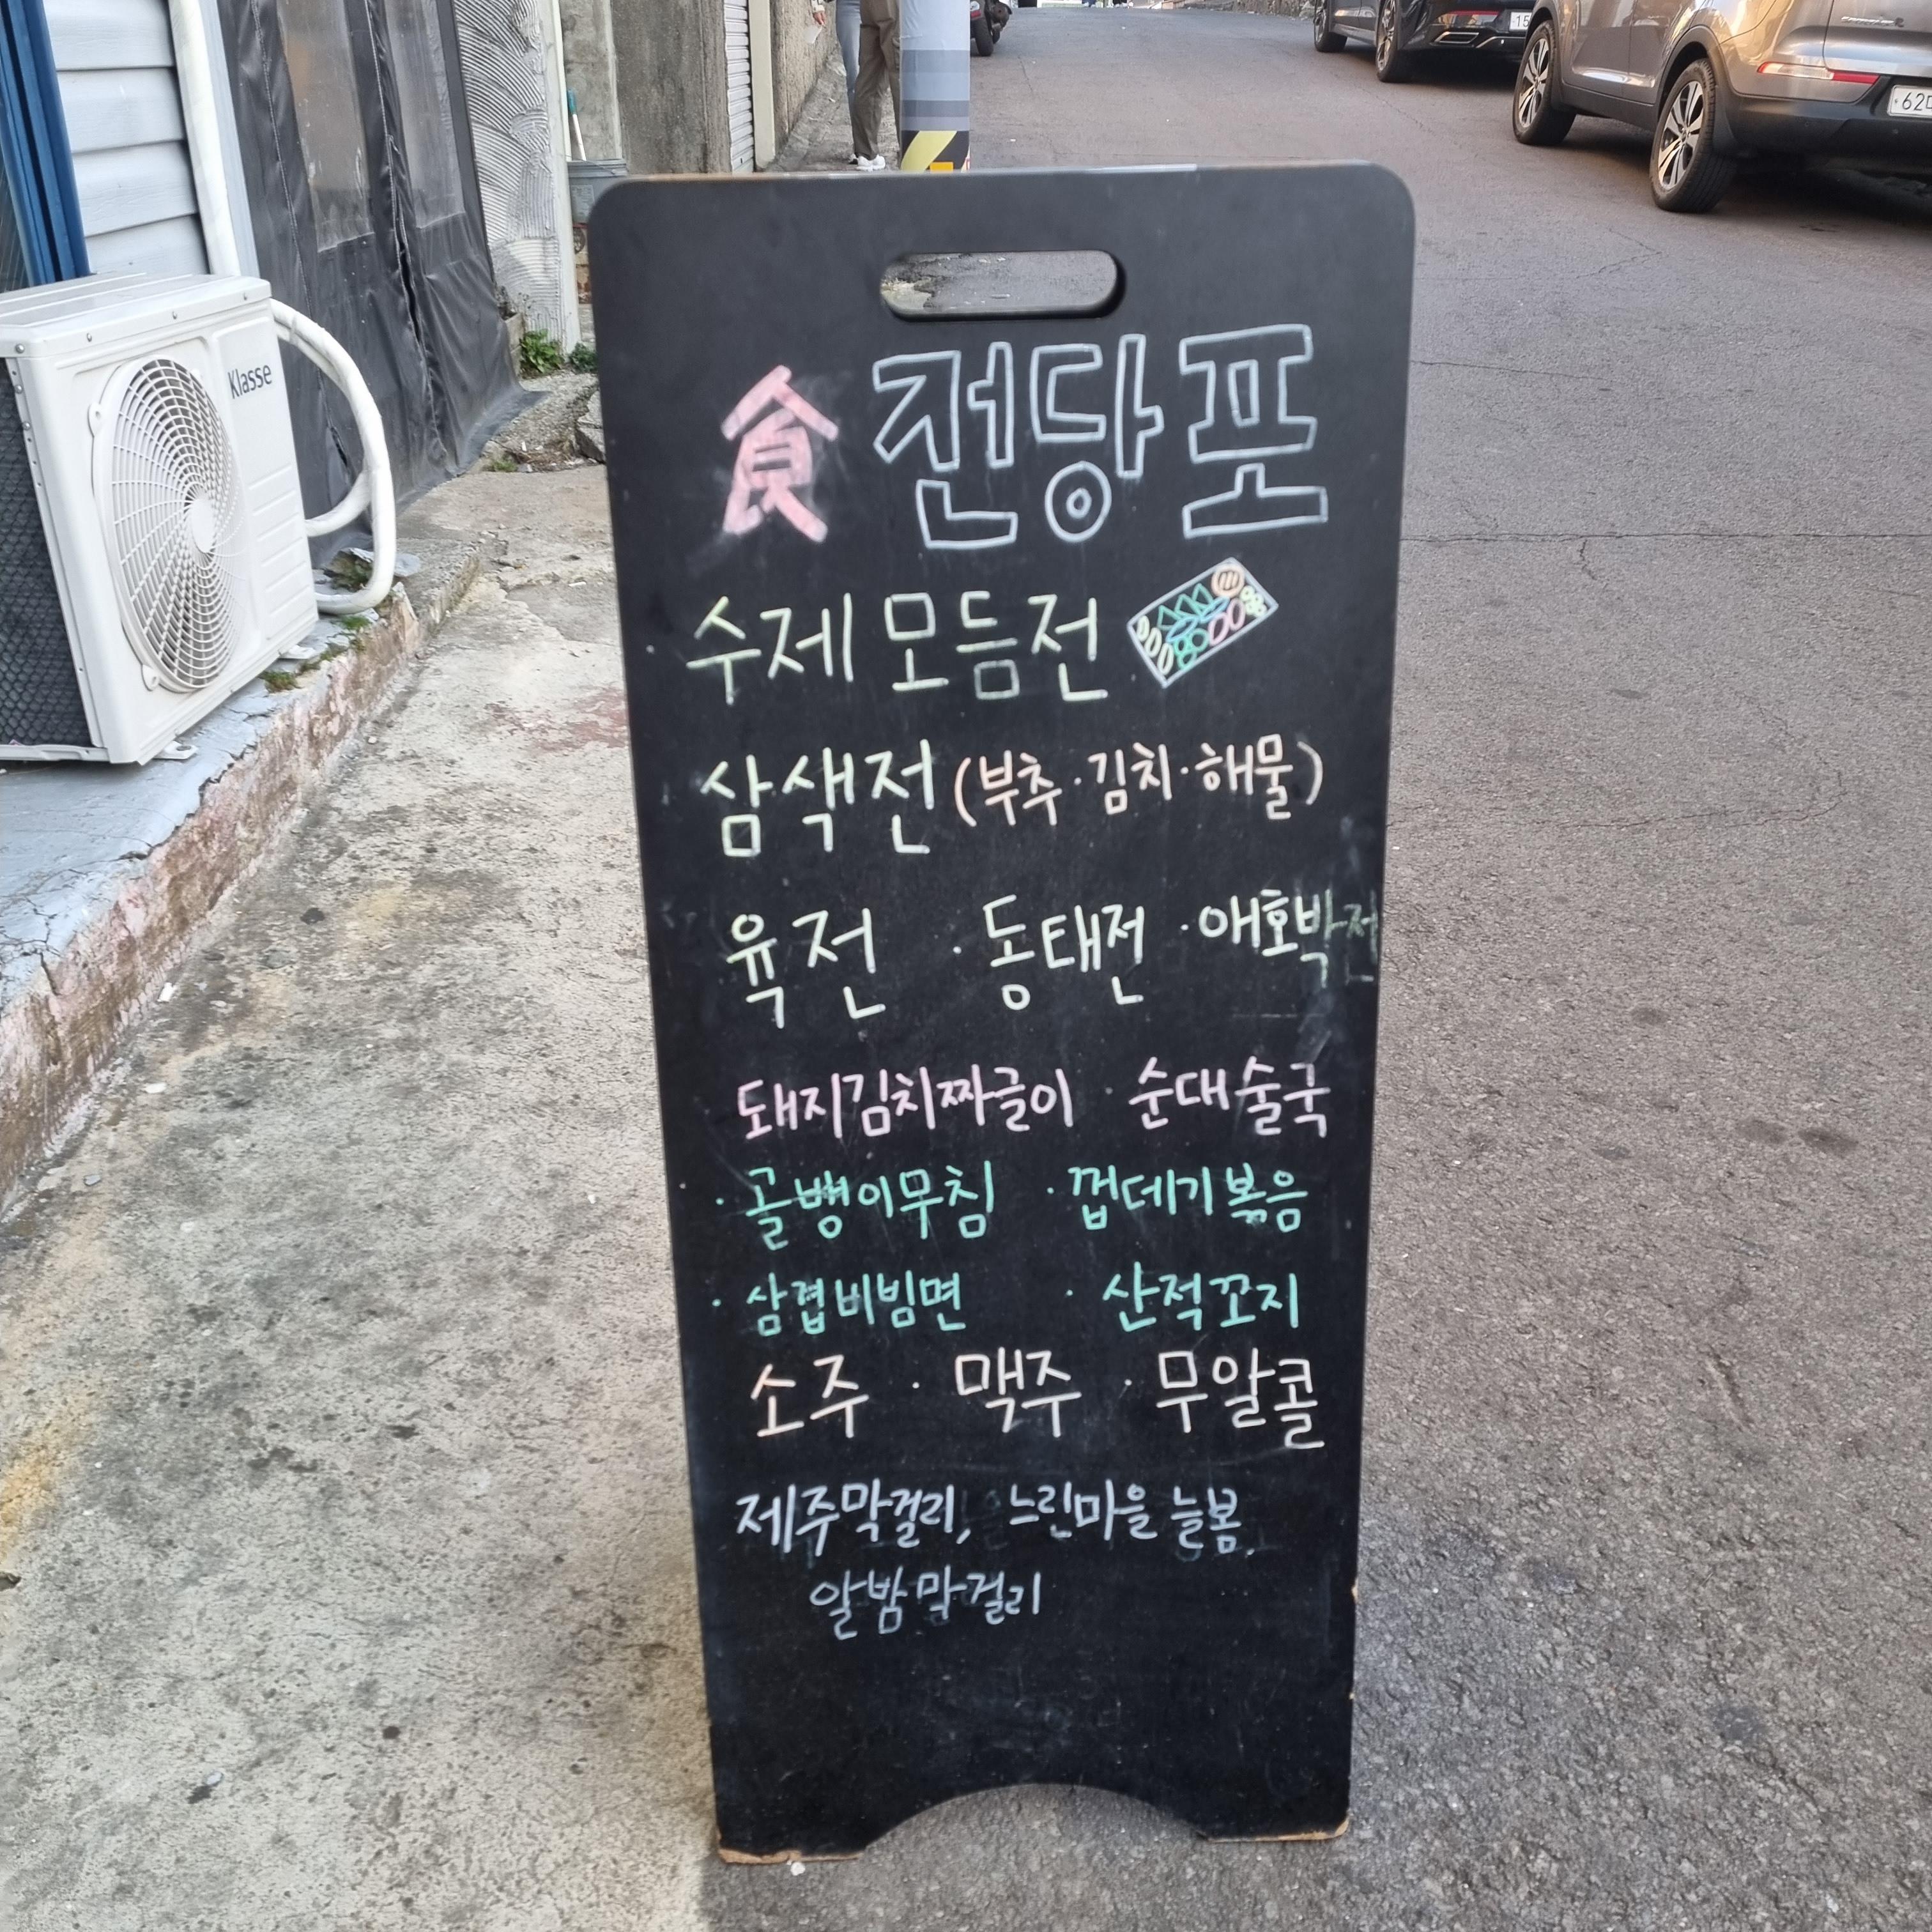 Klasse
食 전당포
수제 모듬전
삼색전 (부추·김치·해물)
육전 ·동태전 ·애호박전
돼지김치짜글이 ·순대술국
·골뱅이무침 ·껍데기볶음
·삼겹비빔면 ·산적꼬지
소주 · 맥주 · 무알콜
제주막걸리, 느린마을 늘봄,
알밤막걸리